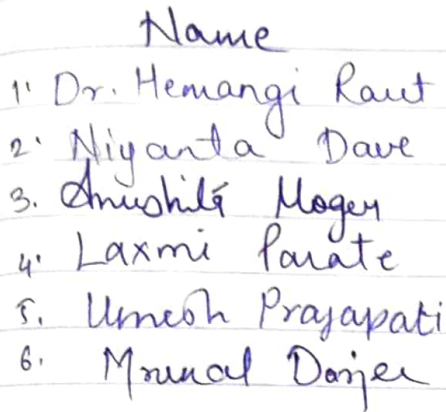 Name
1. Dr. Hemangi Raut
2. Niyanta Dave
3. Moger
4. Laxmi Parate
5. Umesh Prajapati
6. Mrunal